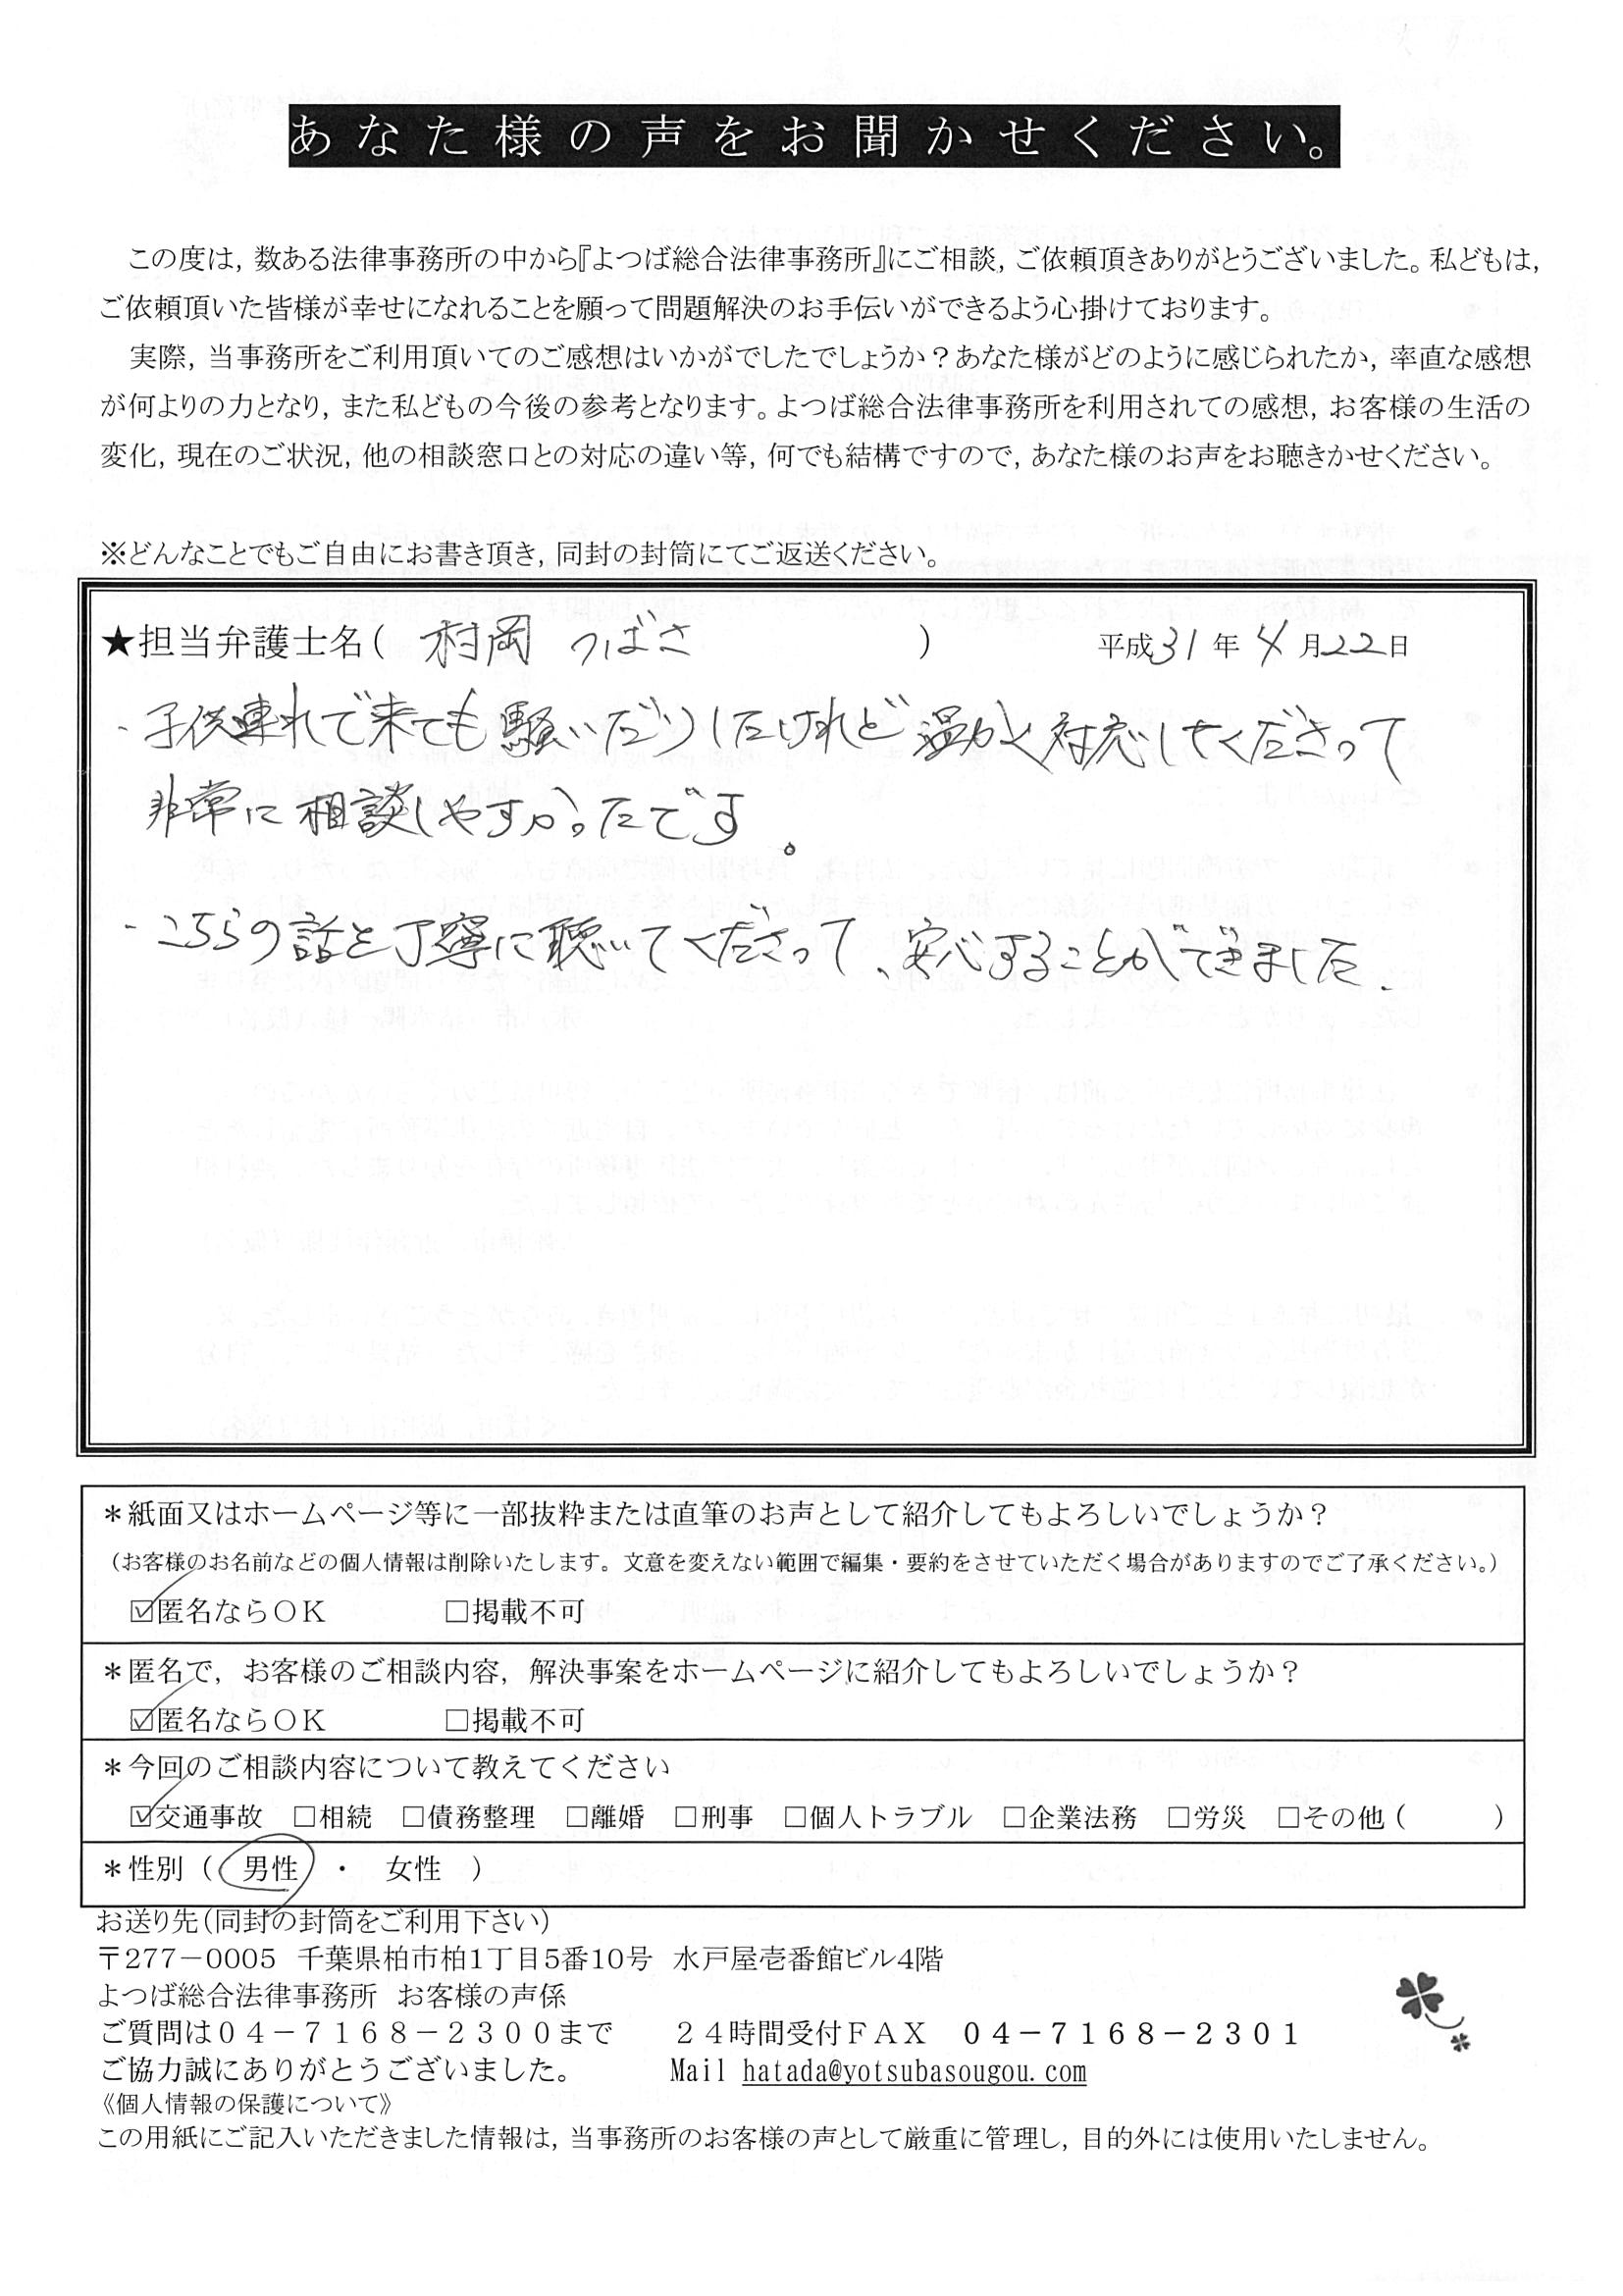 あなた様の声をお聞かせください。
この度は，数ある法律事務所の中から『よつば総合法律事務所』にご相談，ご依頼頂きありがとうございました。私どもは，
ご依頼頂いた皆様が幸せになれることを願って問題解決のお手伝いができるよう心掛けております。
実際，当事務所をご利用頂いてのご感想はいかがでしたでしょうか？あなた様がどのように感じられたか，率直な感想
が何よりの力となり，また私どもの今後の参考となります。よつば総合法律事務所を利用されての感想，お客様の生活の
変化，現在のご状況，他の相談窓口との対応の違い等，何でも結構ですので，あなた様のお声をお聴きかせください。
※どんなことでもご自由にお書き頂き，同封の封筒にてご返送ください。
★担当弁護士名（ 村岡 つばさ ） 平成31年4月22日
・子供連れで来ても騒いだりしたけれど温かく対応してくださって
非常に相談しやすかったです。
・こちらの話を丁寧に聴いてくださって、安心することができました。
＊紙面又はホームページ等に一部抜粋または直筆のお声として紹介してもよろしいでしょうか？
（お客様のお名前などの個人情報は削除いたします。文意を変えない範囲で編集・要約をさせていただく場合がありますのでご了承ください。）
☑匿名ならＯＫ □掲載不可
＊匿名で，お客様のご相談内容，解決事案をホームページに紹介してもよろしいでしょうか？
☑匿名ならＯＫ □掲載不可
＊今回のご相談内容について教えてください
☑交通事故 □相続 □債務整理 □離婚 □刑事 □個人トラブル □企業法務 □労災 □その他（ ）
＊性別（ 男性 ・ 女性 ）
お送り先（同封の封筒をご利用下さい）
〒277－0005 千葉県柏市柏1丁目5番10号 水戸屋壱番館ビル4階
よつば総合法律事務所 お客様の声係
ご質問は０４－７１６８－２３００まで ２４時間受付ＦＡＸ ０４－７１６８－２３０１
ご協力誠にありがとうございました。 Mail hatada@yotsubasougou.com
《個人情報の保護について》
この用紙にご記入いただきました情報は，当事務所のお客様の声として厳重に管理し，目的外には使用いたしません。